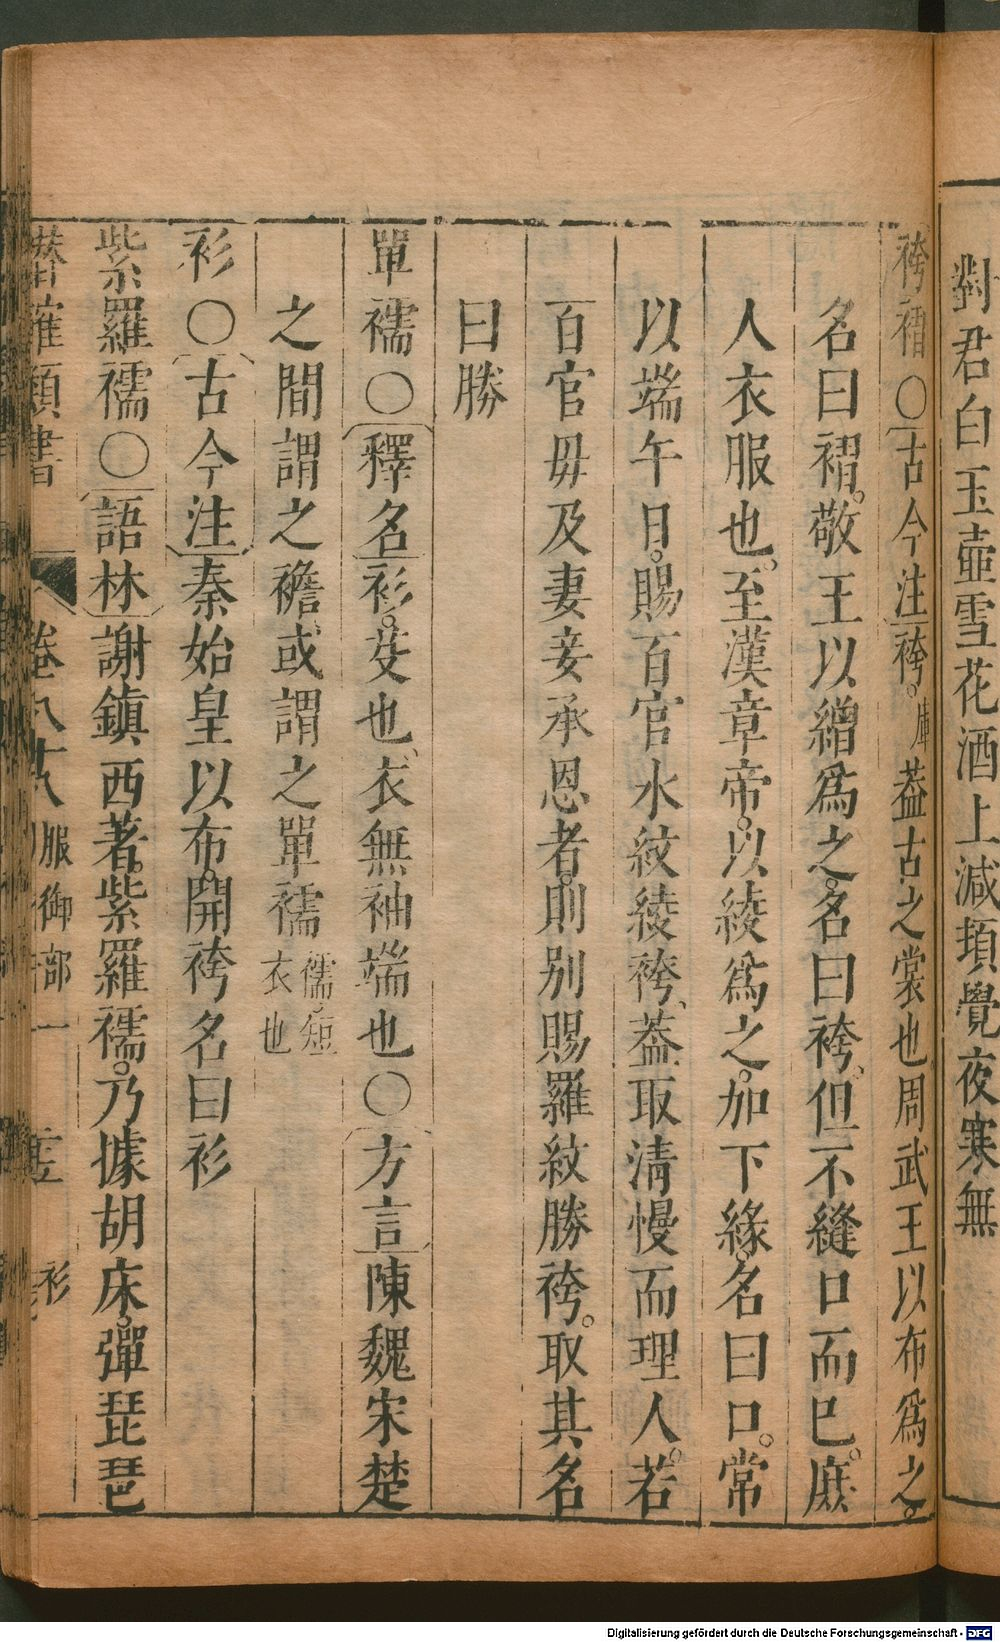 對君白玉壺雪花酒上減頊覺夜寒無
袴褶〇古今注袴。庫葢古之裳也周武王以布爲之。
名曰褶。敬王以繒爲之。名曰袴、但不縫口而巳。庶
人衣服也。至漢章帝。以綾爲之。加下緣。名曰口。常
以端午日。賜百官水紋綾袴、葢取清慢而理人。若
百官毋及妻妾承恩者。則别賜羅紋勝袴。取其名
曰勝
單襦〇釋名衫。芟也、衣無袖端也〇方言陳魏宋楚
之間謂之襜、或謂之單襦襦、短衣也
衫〇古今注秦始皇以布。開袴名曰衫
紫羅襦〇語林謝鎮西著。紫羅襦。乃據胡床。彈琵琶
卷八十八 服御部一 衫
Digitalisierung gefördert durch die Deutsche Forschungsgemeinschaft - DFG